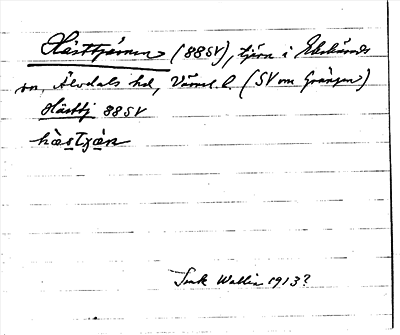 Hästtjärnen (88SV), tjärn i Ekshärads
sn, Älvdals hd, Värml. l. (SV om Grången)
Hästtj 88SV
hæstjæn
Wallin 1913?